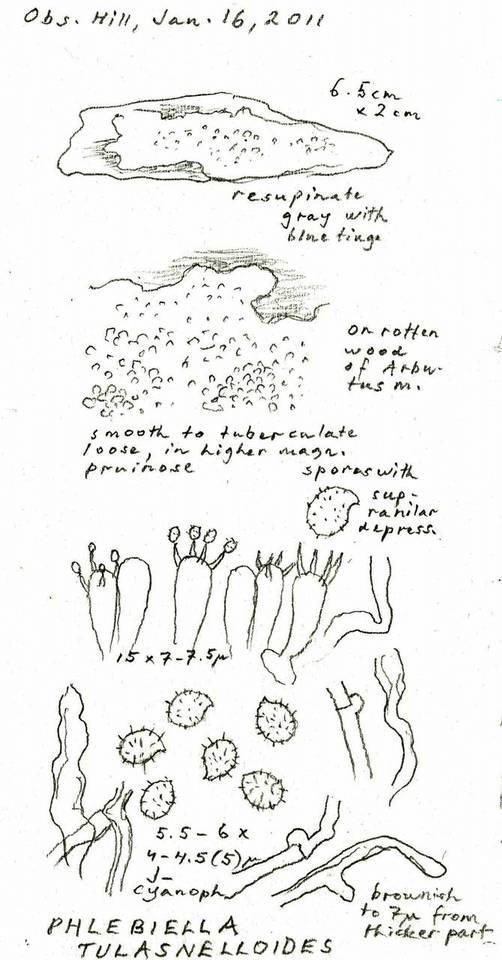 Obs. Hill, Jan. 16, 2011
6.5 cm
x 2 cm
resupinate
gray with
blue tinge
on rotten
wood
of Arbu-
tus m.
smooth to tuberculate
loose, in higher magn.
pruinose
spores with
sup-
ranilar
depress.
15 x 7-7.5µ
5.5-6 x
4-4.5(5)µ
J-
cyanoph.
brownish
to 7µ from
thicker part
PHLEBIELLA
TULASNELLOIDES